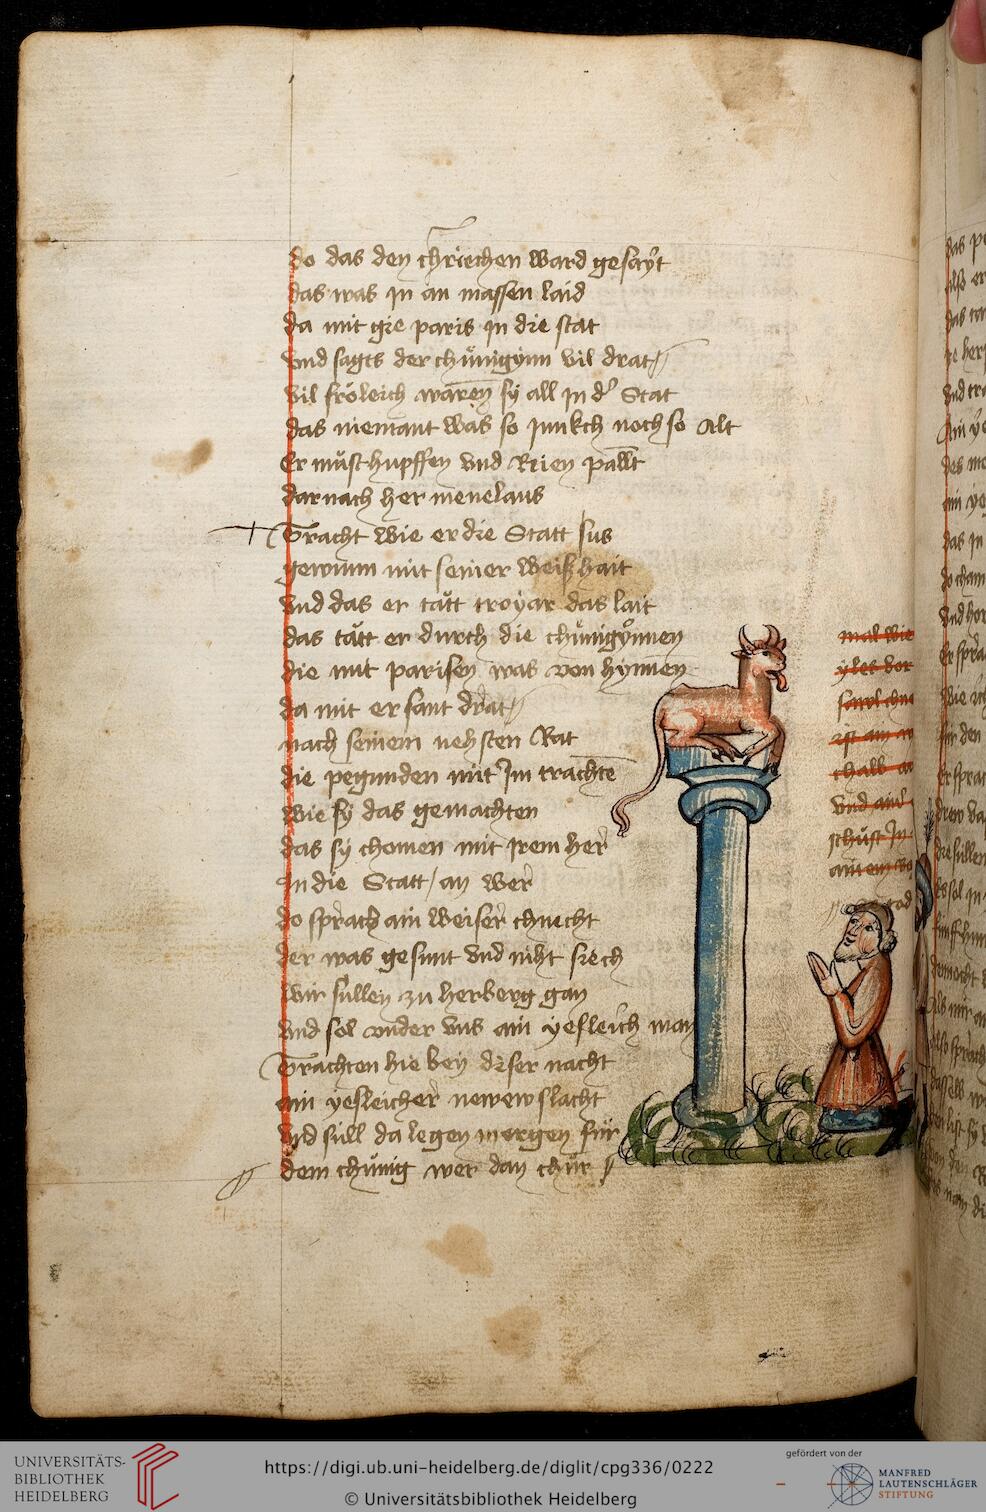 do das den chriechen ward gesayt
das was jn an massen laid
da mit gie paris jn die stat
vnd sagts der chünigynn vil drat
vil fröleich waren sy all jn d' Stat
das niemant was so junkch noch so Alt
Er müst hupffen vnd
darnach her menelaus
Tracht wie er die Statt sus
gewunn mit seiner weishait
vnd das er tätt troyar das lait
das tätt er durch die chünigynnen
die mit parisen was von hynnen
da mit er sant drat
nach seinem nehsten Rat
die pegunden mit Im trachten
wie sy das gemachten
das sy chomen mit irem her
In die Statt / an wer
do sprach ain weiser chnecht
der was gesunt vnd niht siech
wir sullen zu herberg gan
vnd sol vnder vns ain yesleich man
Trachten hie bey diser nacht
ain yesleicher newew slacht
vnd süll da legen mergen für
dem chünig wer dan chür
mal wie
vnd ain
UNIVERSITÄTS-
BIBLIOTHEK
HEIDELBERG
https://digi.ub.uni-heidelberg.de/diglit/cpg336/0222
© Universitätsbibliothek Heidelberg
gefördert von der
MANFRED
LAUTENSCHLÄGER
STIFTUNG